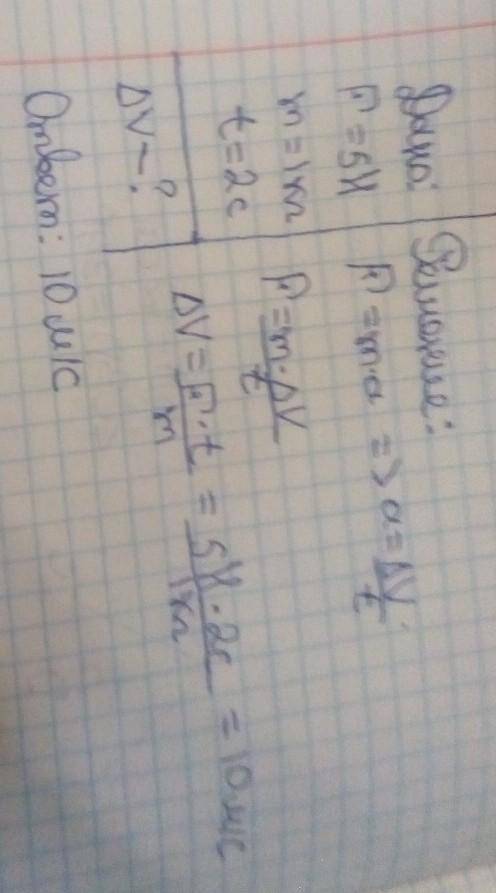 Дано:
F = 5Н
m = 1кг
t = 2с
ΔV - ?
Решение:
F = m·a => a = ΔV/t
F = m·ΔV/t
ΔV = F·t/m = 5Н·2с/1кг = 10 м/с
Ответ: 10 м/с